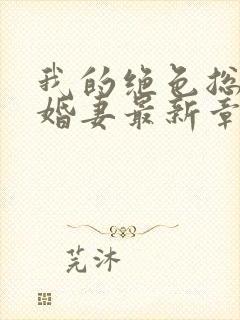 我的绝色总
婚妻最新章
芫沐